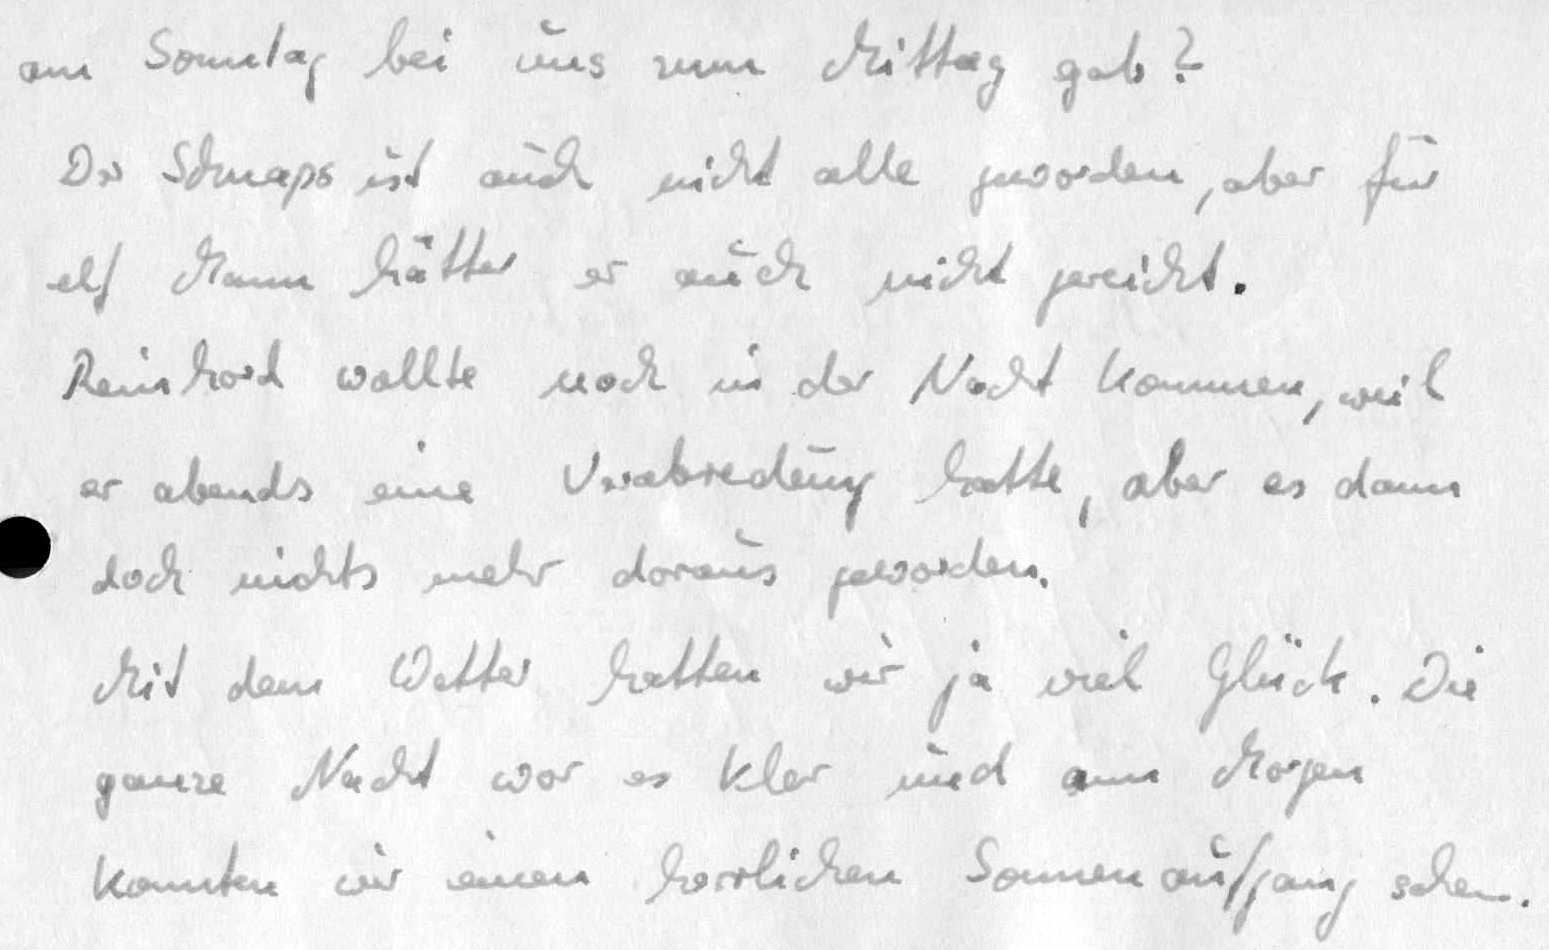 am Sonntag bei uns zum Mittag gab?
Der Schnaps ist auch nicht alle geworden, aber für
elf Mann hätter er auch nicht gereicht.
Reinhard wollte noch in der Nacht kommen, weil
er abends eine Verabredung hatte, aber es dann
doch nichts mehr daraus geworden.
Mit dem Wetter hatten wir ja viel Glück. Die
ganze Nacht war es klar und am Morgen
konnten wir einen herrlichen Sonnenaufgang sehen.